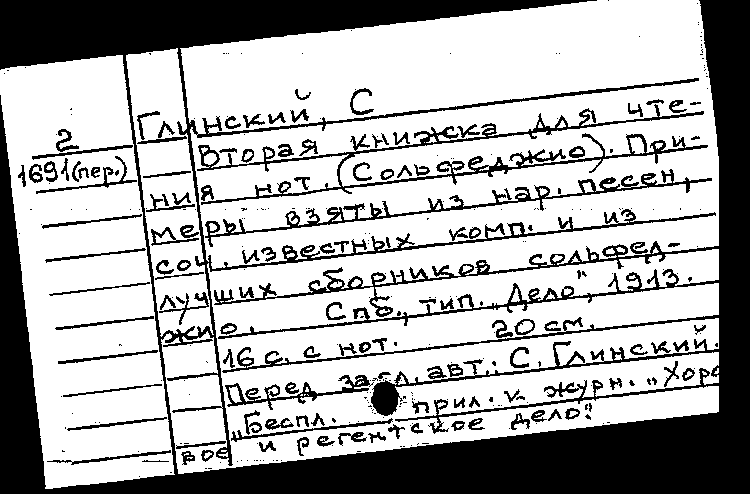 Глинский, С
2
1691(пер.)
Вторая книжка для чте-
ния нот. (Сольфеджио). При-
меры взяты из нар. песен,
соч. известных комп. и из
лучших сборников сольфед-
жио. Спб., тип. „Дело", 1913.
16 с. с нот. 20 см.
Перед загл. авт.: С. Глинский.
„Беспл. прил. к журн. „Хоро
вое и регентское дело".